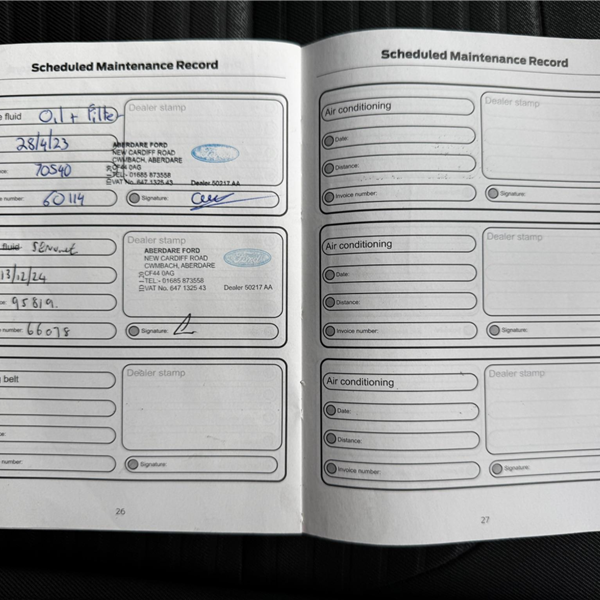 Scheduled Maintenance Record
fluid Oil + Filter
28/4/23
70540
number: 60114
Dealer stamp
ABERDARE FORD
NEW CARDIFF ROAD
CWMBACH, ABERDARE
CF44 0AG
TEL:- 01685 873558
VAT No. 647 1325 43 Dealer 50217 AA
Ford
Signature:
fluid Service
13/12/24
95819.
number: 66078
Dealer stamp
ABERDARE FORD
NEW CARDIFF ROAD
CWMBACH, ABERDARE
CF44 0AG
TEL:- 01685 873558
VAT No. 647 1325 43 Dealer 50217 AA
Ford
Signature:
belt
number:
Dealer stamp
Signature:
26
Scheduled Maintenance Record
Air conditioning
Date:
Distance:
Invoice number:
Dealer stamp
Signature:
Air conditioning
Date:
Distance:
Invoice number:
Dealer stamp
Signature:
Air conditioning
Date:
Distance:
Invoice number:
Dealer stamp
Signature:
27